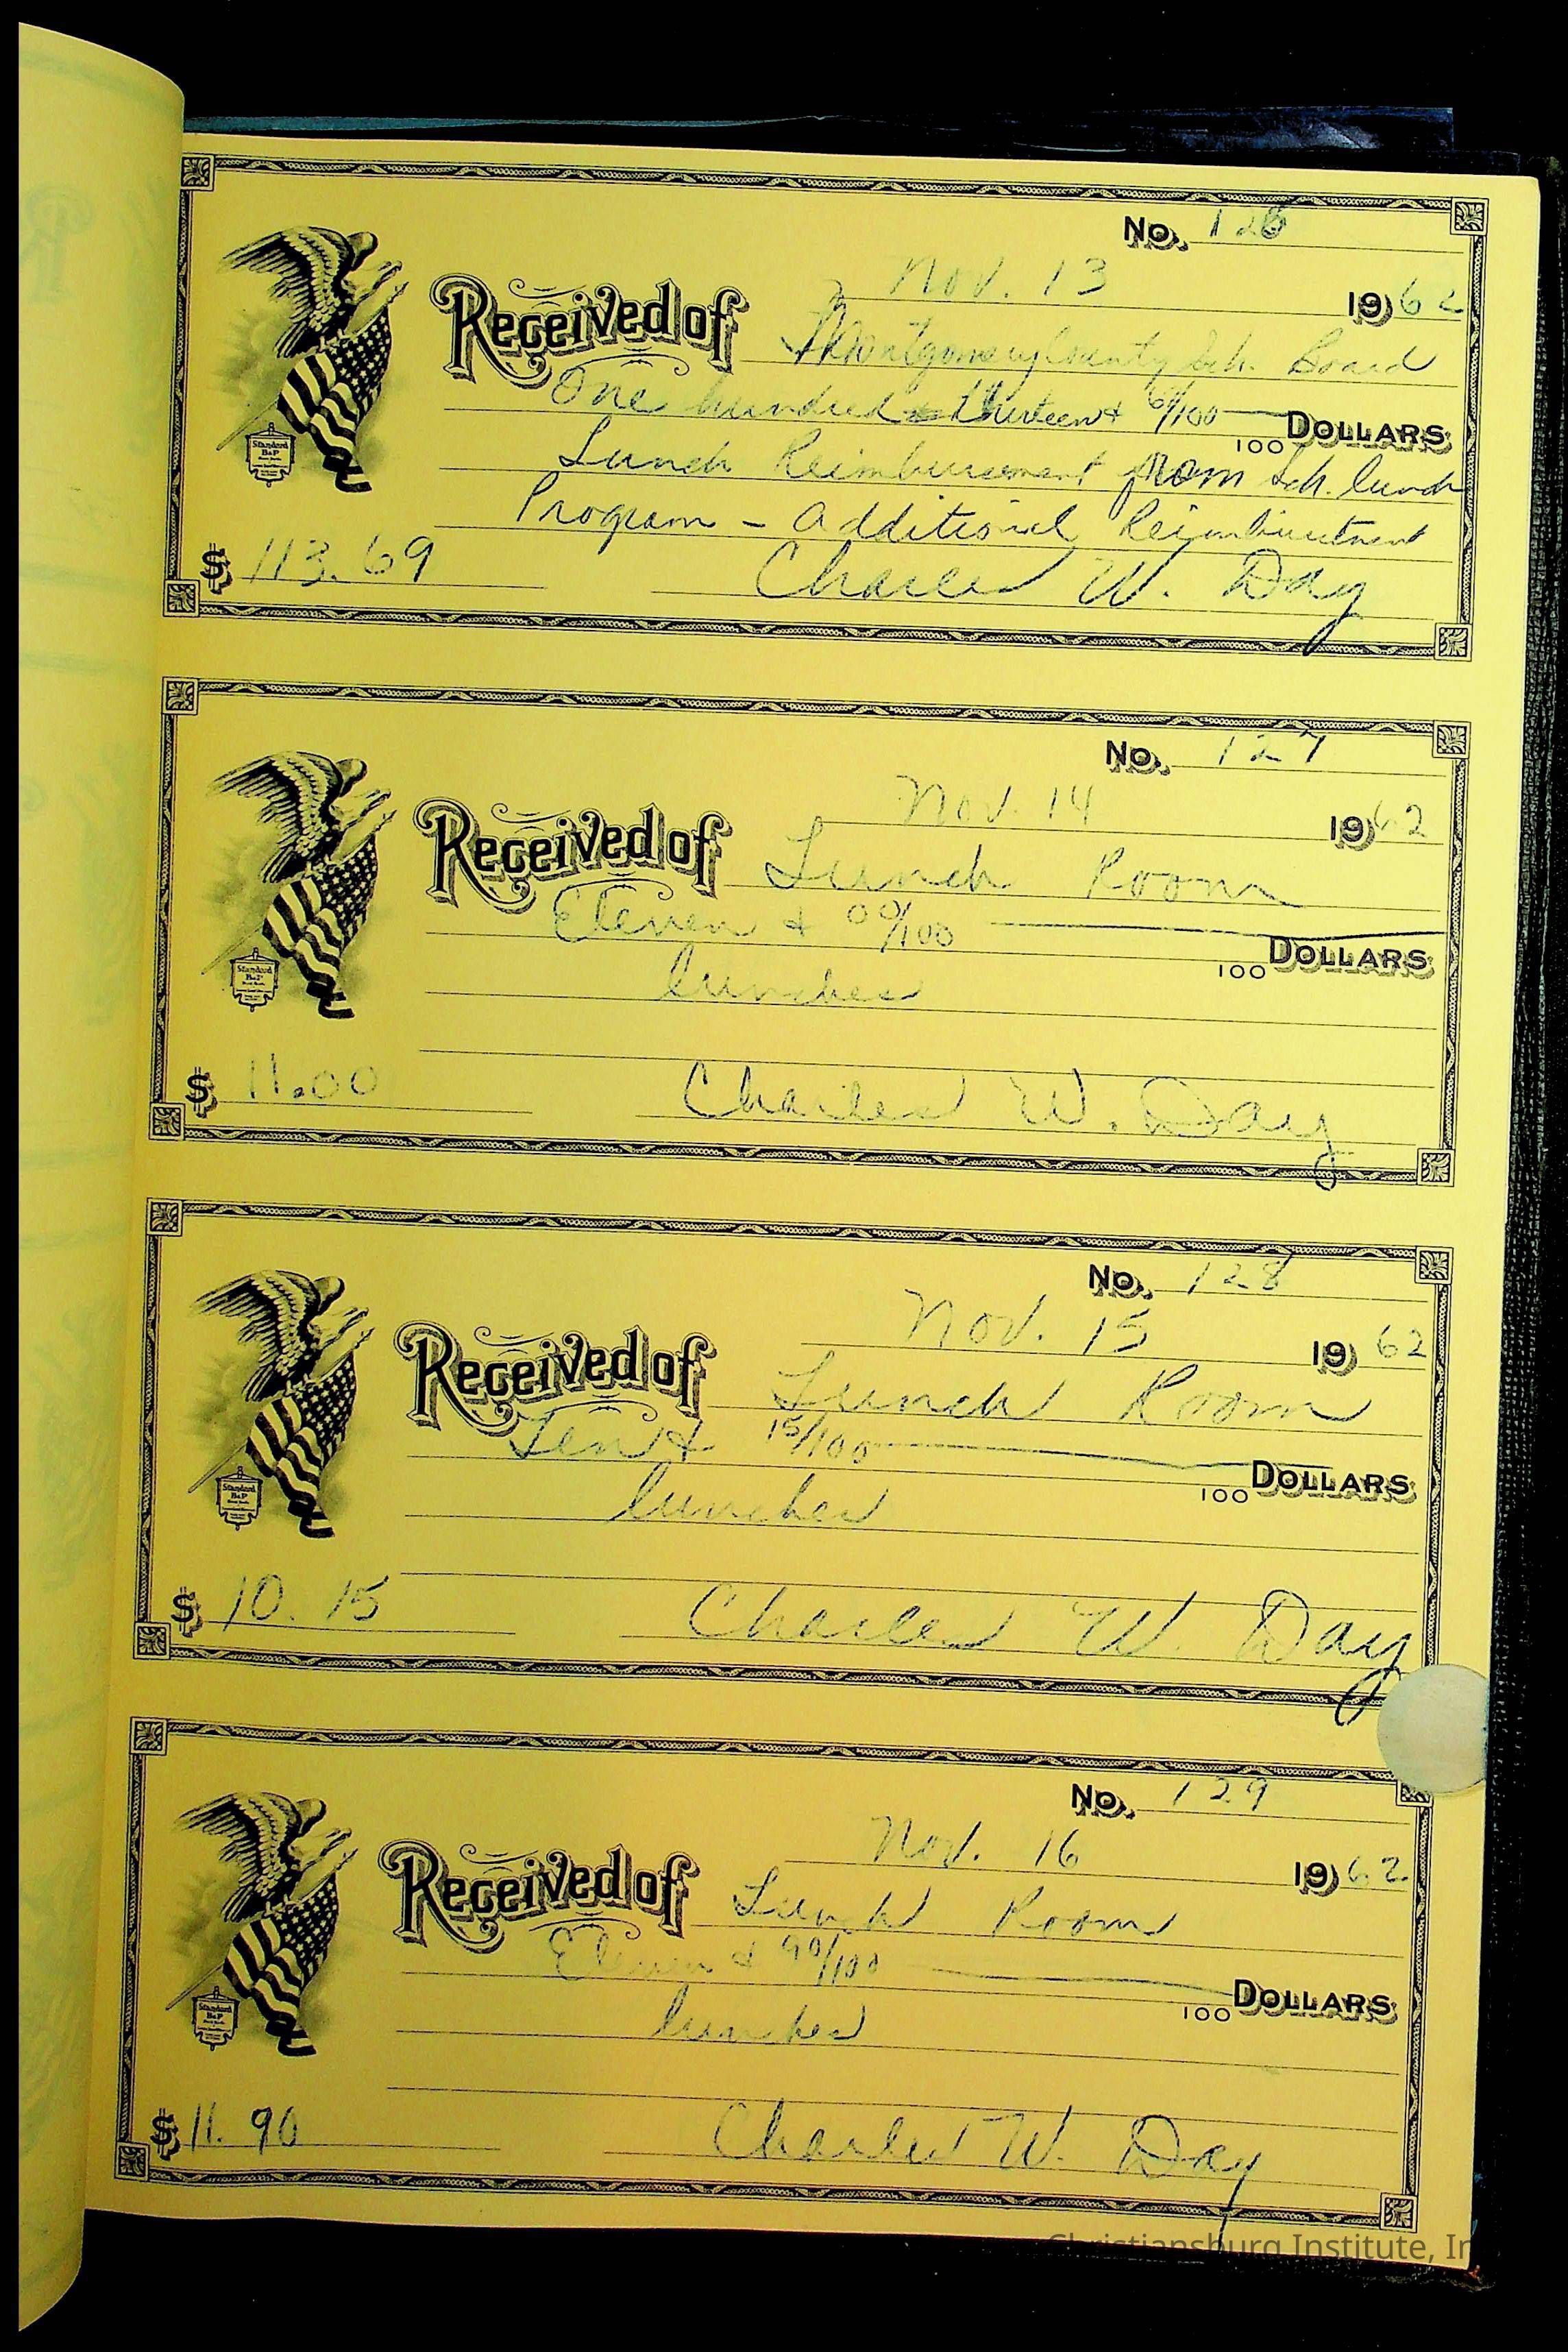 No. 126
Nov. 13 1962
Received of Montgomery County Sch. Board
One hundred & thirteen & 69/100 100 DOLLARS
Lunch Reimbursement from Sch. lunch
Program - Additional Reimbursement
$ 113.69 Charles W. Day
No. 127
Nov. 14 1962
Received of Lunch Room
Eleven & 00/100 100 DOLLARS
lunches
$ 11.00 Charles W. Day
No. 128
Nov. 15 1962
Received of Lunch Room
Ten & 15/100 100 DOLLARS
lunches
$ 10.15 Charles W. Day
No. 129
Nov. 16 1962
Received of Lunch Room
Eleven & 90/100 100 DOLLARS
lunches
$ 11.90 Charles W. Day
Christiansburg Institute, In